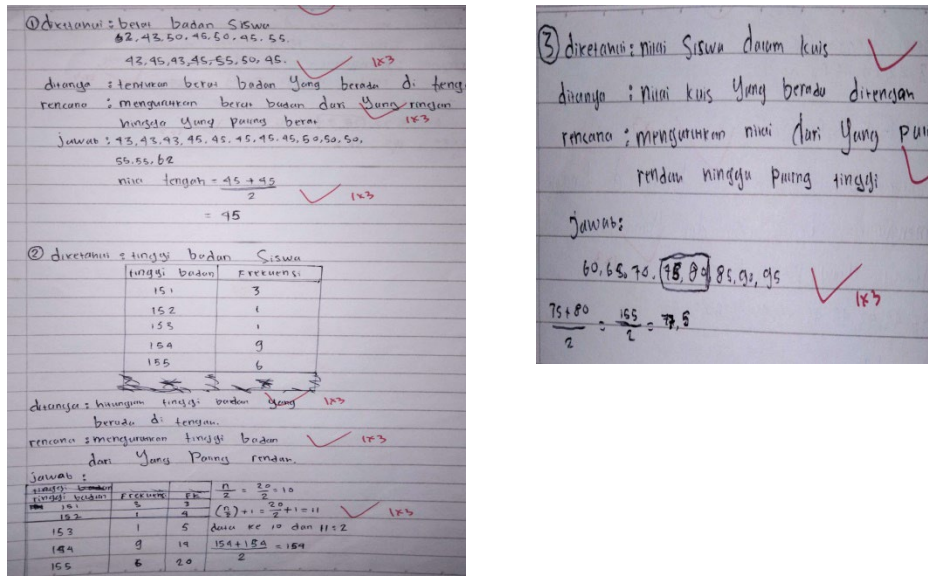 ① diketahui : berat badan Siswa
62, 43, 50, 45, 50, 45, 55.
43, 45, 43, 45, 55, 50, 45.
1x3
ditanya : tentukan berat badan yang berada di teng
rencana : mengurutkan berat badan dari yang ringan
hingga yang paling berat
1x3
jawab : 43, 43, 43, 45, 45, 45, 45, 45, 50, 50, 50,
55, 55, 62
nilai tengah = 45 + 45
2
1x3
= 45
② diketahui : tinggi badan Siswa
tinggi badan Frekuensi
151 3
152 1
153 1
154 9
155 6
ditanya : hitunglah tinggi badan yang 1x3
berada di tengah.
rencana : mengurutkan tinggi badan 1x3
dari yang Paling rendah.
jawab :
tinggi badan Frekuensi Fk n/2 = 20/2 = 10
151 3 3
152 1 4 (n/2) + 1 = 20/2 + 1 = 11 1x3
153 1 5 data ke 10 dan 11 = 2
154 9 14 154 + 154 / 2 = 154
155 6 20
③ diketahui : nilai Siswa dalam kuis
ditanya : nilai kuis yang berada ditengah
rencana : mengurutkan nilai dari yang pali
rendah hingga paling tinggi
jawab :
60, 65, 70, 75, 80, 85, 90, 95
1x3
75 + 80 / 2 = 155 / 2 = 77,5